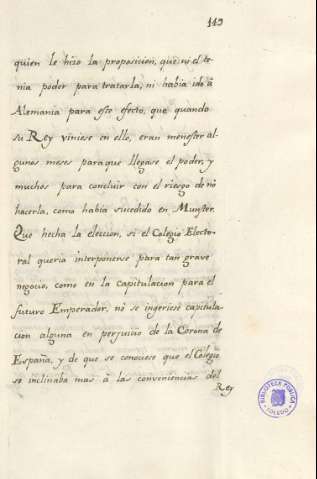 143
quien le hizo la proposicion, que no el te-
nia poder para tratarla, ni habia ido à
Alemania para este efecto, que quando
su Rey viniese en ello, eran menester al-
gunos meses para que llegase el poder, y
muchos para concluir con el riesgo de no
hacerla, como habia sucedido en Munster.
Que hecha la eleccion, si el Colegio Electo-
ral queria interponerse para tan grave
negocio, como en la capitulacion para el
futuro Emperador, no se ingeriese capitula-
cion alguna en perjuicio de la Corona de
España, y de que se conociese que el Colegio
se inclinaba mas à las conveniencias del
Rey
BIBLIOTECA PUBLICA
TOLEDO